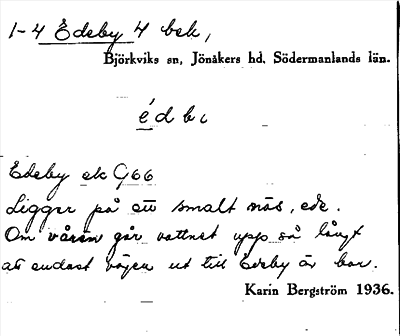 1-4 Edeby 4 bek,
Björkviks sn, Jönåkers hd, Södermanlands län.
é d b ɩ
Edeby ek G66
Ligger på ett smalt näs, ede.
Om våren går vattnet upp så långt
att endast vägen ut till Edeby är bar.
Karin Bergström 1936.